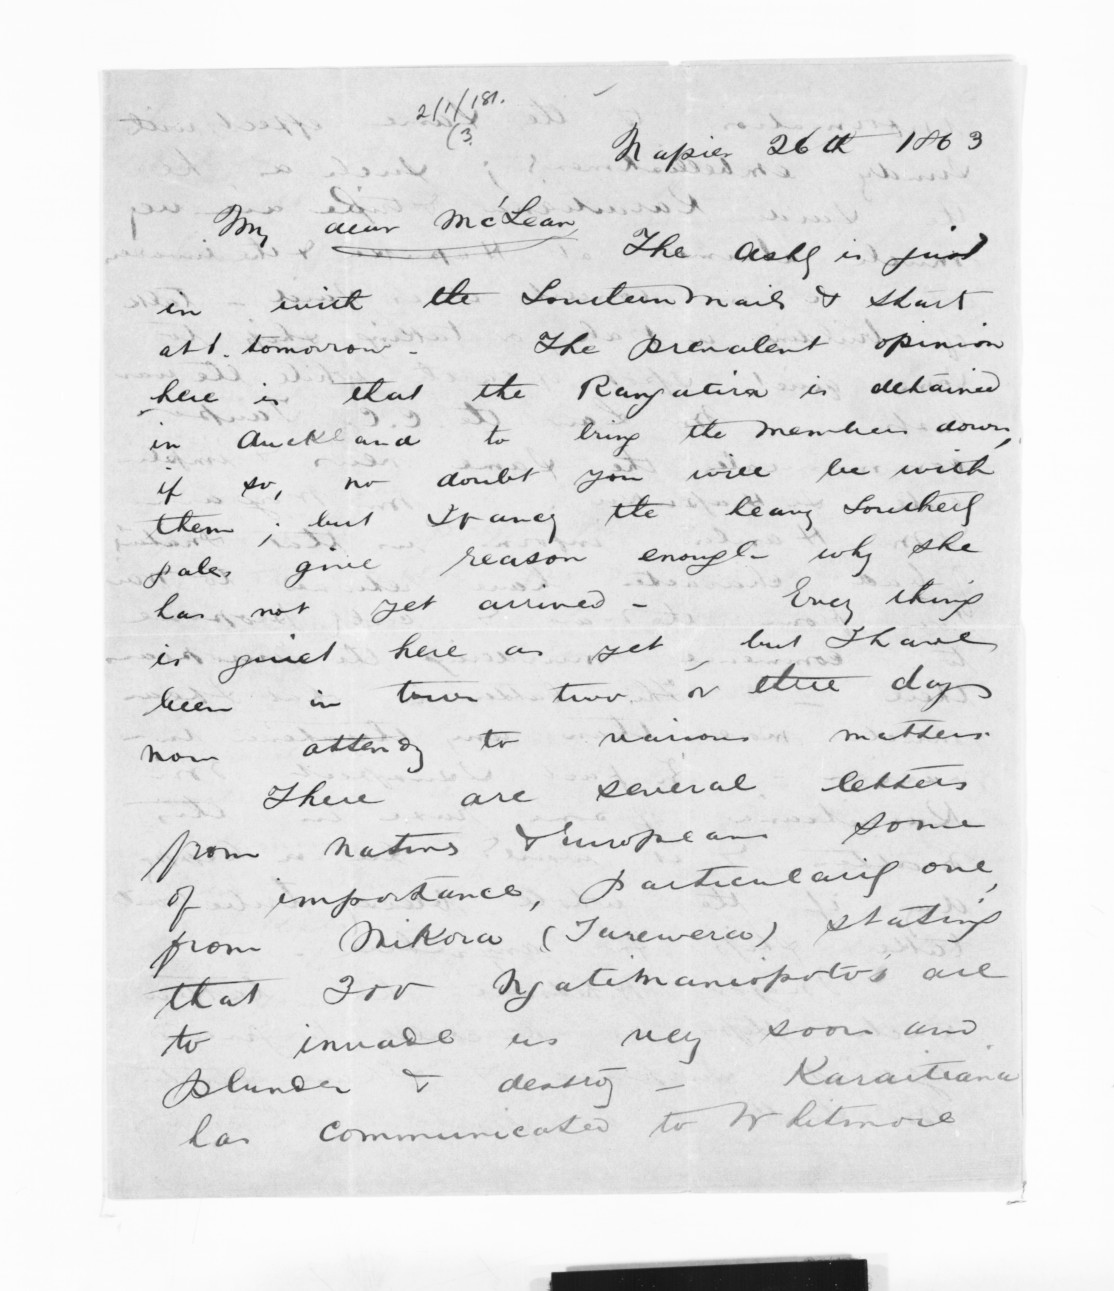 2/1/181.
(3.
Napier 26th 1863
My dear McLean,
The Ashly is just
in with the Southern Mails & start
at 1. tomorrow - The prevalent opinion
here is that the Rangatira is detained
in Auckland to bring the members down,
if so, no doubt you will be with
them; but I fancy the heavy Southerly
gales give reason enough why she
has not yet arrived - Every thing
is quiet here as yet, but I have
been in town two or three days
now attendg to various matters.
There are several letters
from Natives & Europeans some
of importance, particularly one,
from Mikora (Tarewera) stating
that 200 Ngatimaniopoto's are
to invade us very soon and
plunder & destroy - Karaitiana
has communicated to Whitmore